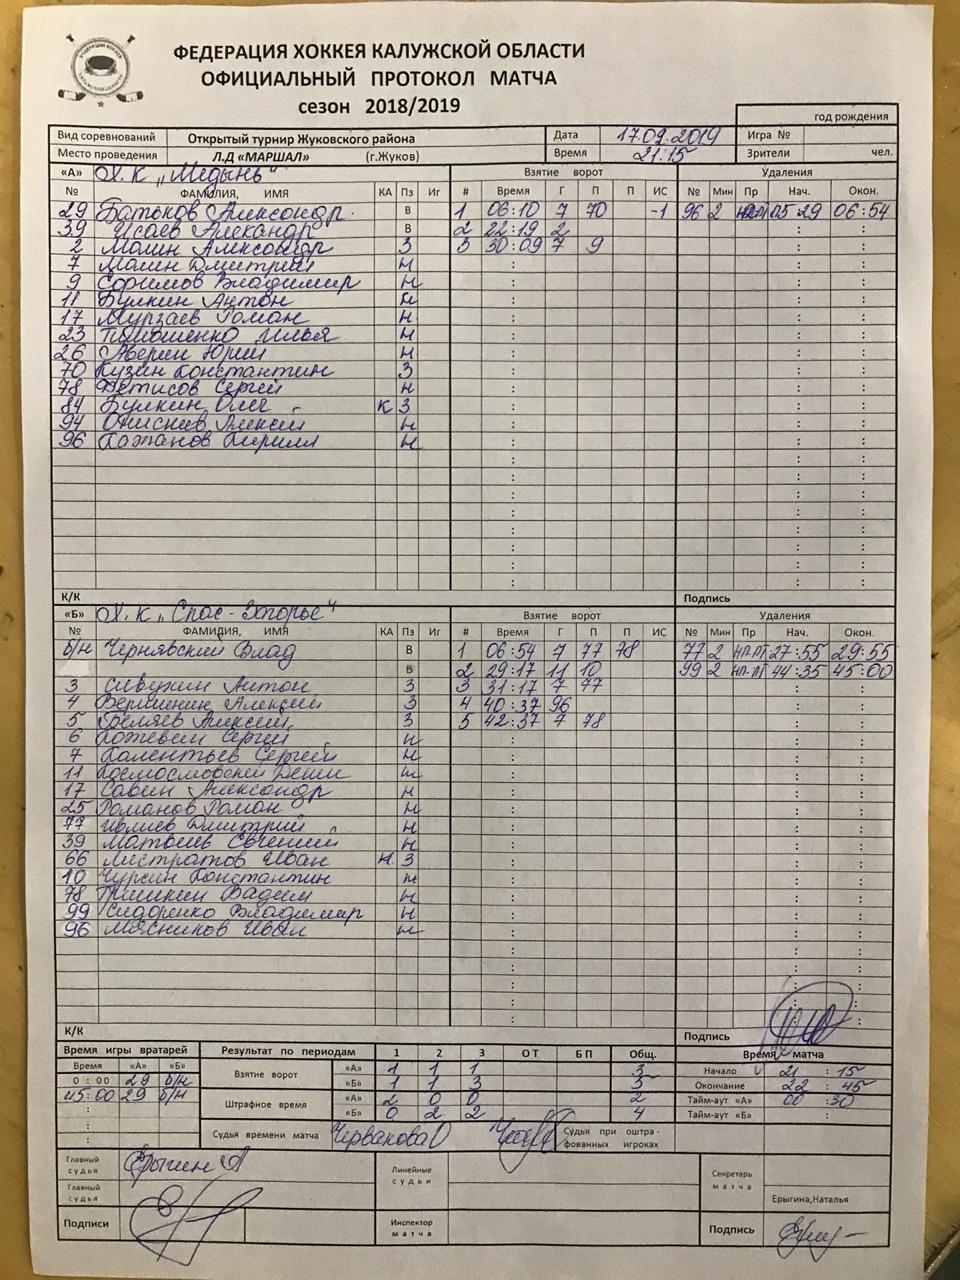 ФЕДЕРАЦИЯ ХОККЕЯ КАЛУЖСКОЙ ОБЛАСТИ
ОФИЦИАЛЬНЫЙ ПРОТОКОЛ МАТЧА
сезон 2018/2019
год рождения
Вид соревнований Открытый турнир Жуковского района Дата 17.02.2019 Игра №
Место проведения Л.Д «МАРШАЛ» (г.Жуков) Время 21:15 Зрители чел.
«А» Х.К „Медынь“ Взятие ворот Удаления
№ ФАМИЛИЯ, ИМЯ КА Пз Иг # Время Г П П ИС № Мин Пр Нач. Окон.
29 Батьков Александр В 1 06:10 7 70 -1 96 2 05 29 06:54
39 Исаев Александр В 2 22:19 2
2 Молин Александр З 3 30:09 7 9
7 Молин Дмитрий Н
9 Владимир Н
11 Булкин Антон Н
17 Мурзаев Роман Н
23 Тимошенко Илья Н
26 Аверин Юрий Н
70 Кузин Константин З
78 Фетисов Сергей Н
84 Булкин Олег К З
94 Алексей Н
96 Кожанов Кирилл Н
К/К Подпись
«Б» Х.К „Спас-Загорье“ Взятие ворот Удаления
№ ФАМИЛИЯ, ИМЯ КА Пз Иг # Время Г П П ИС № Мин Пр Нач. Окон.
б/н Чернявский Влад В 1 06:54 7 77 78 77 2 НП-ПТ 27:55 29:55
В 2 29:17 11 10 99 2 НП-ПТ 44:35 45:00
3 Антон З 3 31:17 7 77
4 Вершинин Алексей З 4 40:37 96
5 Беляев Алексей З 5 42:37 7 78
6 Кожевин Сергей Н
7 Калентьев Сергей Н
11 Н
17 Савин Александр Н
25 Романов Роман Н
77 Ивлиев Дмитрий Н
39 Матвеев Евгений Н
66 Листратов Иван К З
10 Чурсин Константин Н
78 Гришкин Вадим Н
99 Сидоренко Владимир Н
96 Мясников Иван Н
К/К Подпись
Время игры вратарей Результат по периодам 1 2 3 ОТ БП Общ. Время матча
Время «А» «Б» Взятие ворот «А» 1 1 1 3 Начало 21 : 15
0 : 00 29 б/н «Б» 1 1 3 5 Окончание 22 : 45
45:00 29 б/н Штрафное время «А» 2 0 0 2 Тайм-аут «А» 00 : 30
«Б» 0 2 2 4 Тайм-аут «Б» :
Судья времени матча Червакова О Судья при оштрафованных игроках
Главный судья Ерыгин А Линейные судьи Секретарь матча
Главный судья Ерыгина,Наталья
Подписи Инспектор матча Подпись